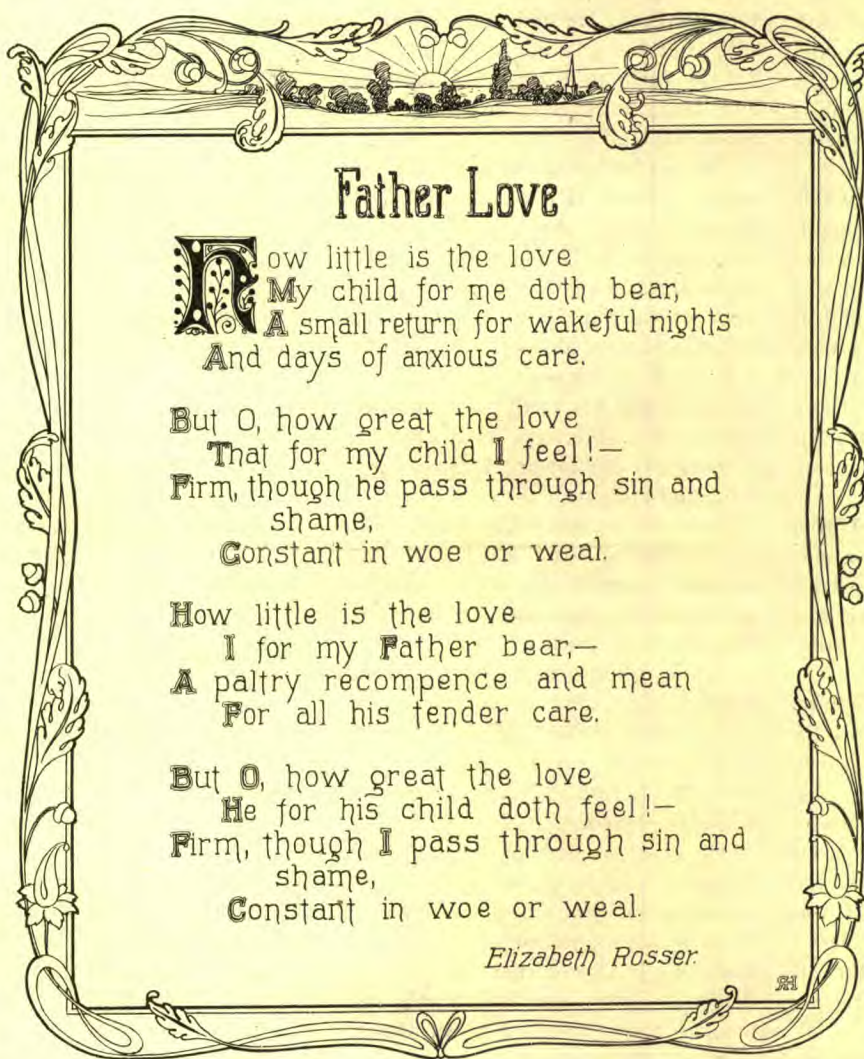 Father Love
How little is the love
My child for me doth bear,
A small return for wakeful nights
And days of anxious care.
But O, how great the love
That for my child I feel!—
Firm, though he pass through sin and
shame,
Constant in woe or weal.
How little is the love
I for my Father bear,—
A paltry recompence and mean
For all his tender care.
But O, how great the love
He for his child doth feel!—
Firm, though I pass through sin and
shame,
Constant in woe or weal.
Elizabeth Rosser.